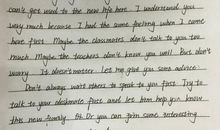 can't get used to the new life here. I understand you
very much because I had the same feeling when I came
here first. Maybe the classmates don't talk to you too
much. Maybe the teachers don't know you well. But don't
worry. It doesn't matter. Let me give you some advice.
Don't always want others to speak to you first. Try to
talk to your deskmate first and let him help you know
this new family. Or you can join some interesting